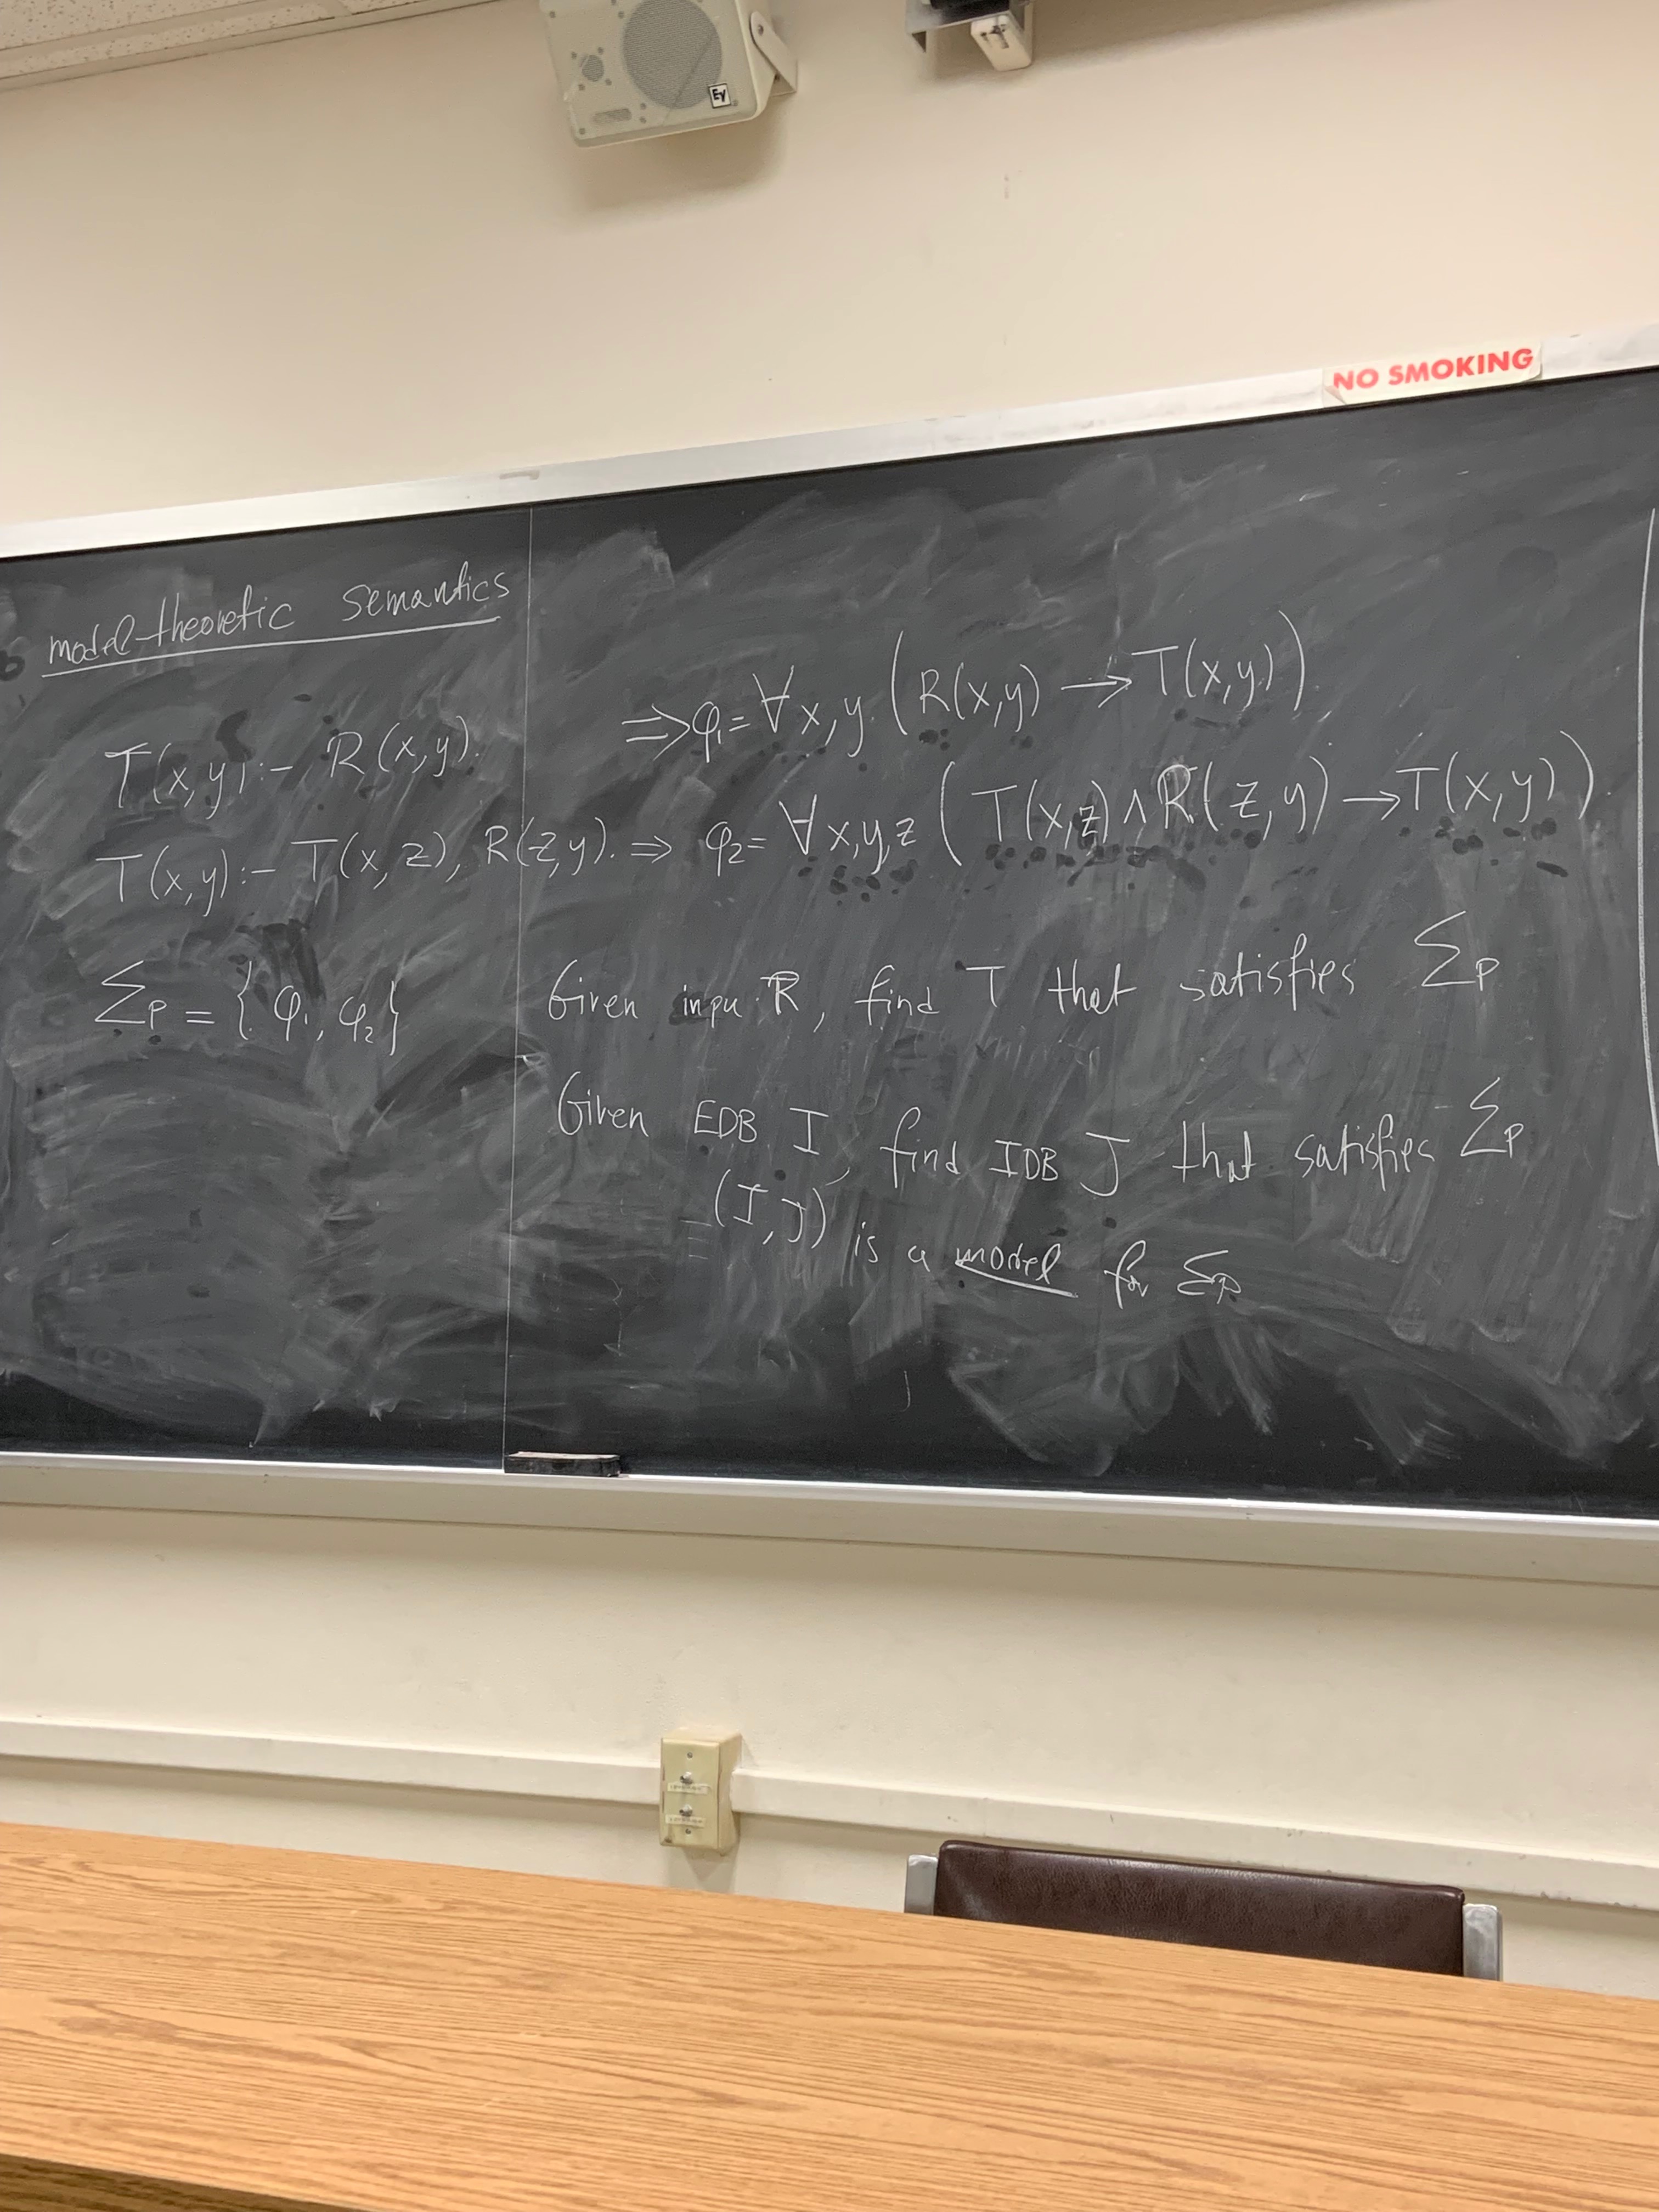 EV
NO SMOKING
model-theoretic semantics
T(x,y) :- R(x,y). ⇒ φ₁ = ∀x,y (R(x,y) → T(x,y))
T(x,y) :- T(x,z), R(z,y). ⇒ φ₂ = ∀x,y,z (T(x,z) ∧ R(z,y) → T(x,y))
Σp = {φ₁, φ₂}
Given inpu R, find T that satisfies Σp
Given EDB I, find IDB J that satisfies Σp
≡ (I,J) is a model for Σp